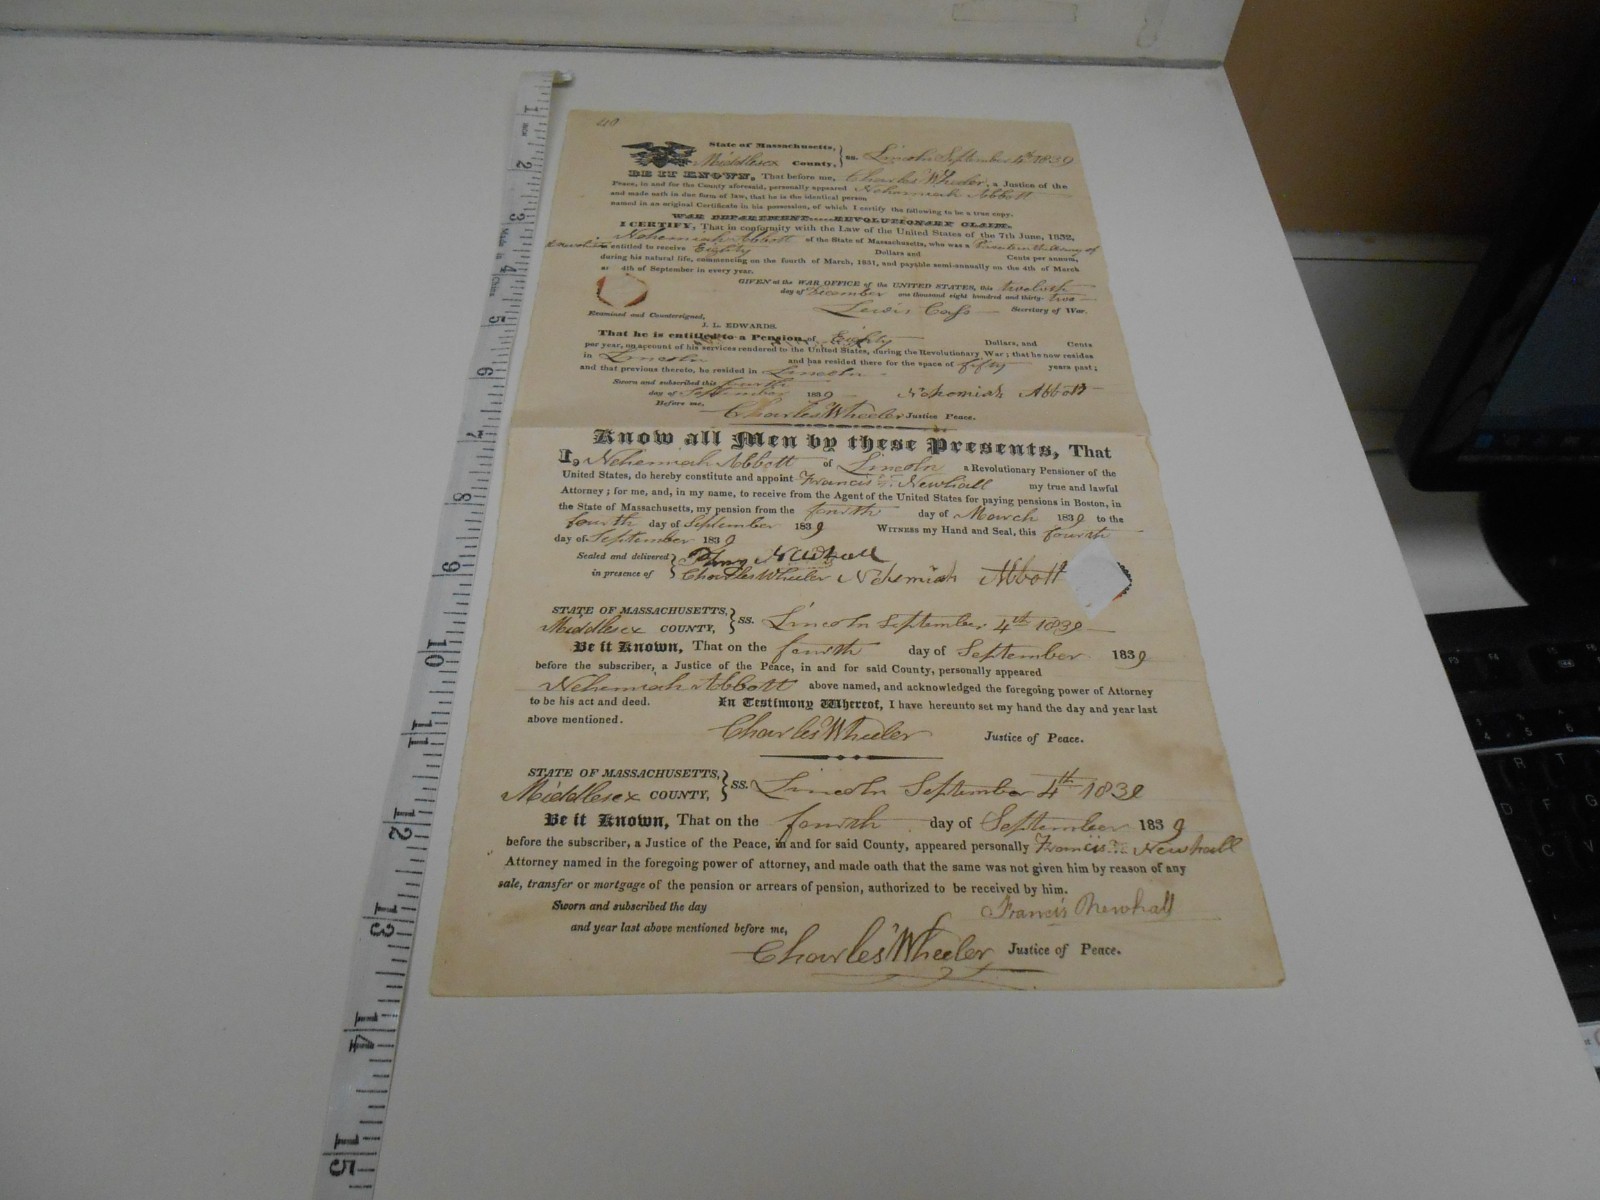 40
State of Massachusetts,
Middlesex County, } ss. Lincoln September 4th 1839
BE IT KNOWN, That before me, Charles Wheeler, a Justice of the
Peace, in and for the County aforesaid, personally appeared Nehemiah Abbott
and made oath in due form of law, that he is the identical person
named in an original Certificate in his possession, of which I certify the following to be a true copy.
WAR DEPARTMENT.....REVOLUTIONARY CLAIM.
I CERTIFY, That in conformity with the Law of the United States of the 7th June, 1832,
Nehemiah Abbott of the State of Massachusetts, who was a Private in the Army of
entitled to receive Eighty Dollars and Cents per annum,
during his natural life, commencing on the fourth of March, 1831, and payable semi-annually on the 4th of March
4th of September in every year.
GIVEN at the WAR OFFICE of the UNITED STATES, this twelfth
day of December one thousand eight hundred and thirty-two
Lewis Cass Secretary of War.
Examined and Countersigned,
J. L. EDWARDS.
That he is entitled to a Pension of Eighty Dollars, and Cents
per year, on account of his services rendered to the United States, during the Revolutionary War; that he now resides
in Lincoln and has resided there for the space of fifty years past;
and that previous thereto, he resided in Lincoln
Sworn and subscribed this fourth
day of September 1839 Nehemiah Abbott
Before me, Charles Wheeler Justice Peace.
Know all Men by these Presents, That
I, Nehemiah Abbott of Lincoln a Revolutionary Pensioner of the
United States, do hereby constitute and appoint Francis Newhall my true and lawful
Attorney; for me, and, in my name, to receive from the Agent of the United States for paying pensions in Boston, in
the State of Massachusetts, my pension from the fourth day of March 1839 to the
fourth day of September 1839 WITNESS my Hand and Seal, this fourth
day of September 1839
Sealed and delivered } Newhall
in presence of Charles Wheeler Nehemiah Abbott
STATE OF MASSACHUSETTS,
Middlesex COUNTY, } ss. Lincoln September 4th 1839
Be it Known, That on the fourth day of September 1839
before the subscriber, a Justice of the Peace, in and for said County, personally appeared
Nehemiah Abbott above named, and acknowledged the foregoing power of Attorney
to be his act and deed. In Testimony Whereof, I have hereunto set my hand the day and year last
above mentioned.
Charles Wheeler Justice of Peace.
STATE OF MASSACHUSETTS,
Middlesex COUNTY, } ss. Lincoln September 4th 1839
Be it Known, That on the fourth day of September 1839
before the subscriber, a Justice of the Peace, in and for said County, appeared personally Francis Newhall
Attorney named in the foregoing power of attorney, and made oath that the same was not given him by reason of any
sale, transfer or mortgage of the pension or arrears of pension, authorized to be received by him.
Sworn and subscribed the day Francis Newhall
and year last above mentioned before me,
Charles Wheeler Justice of Peace.
1
2
3
Made in
4
China
5
6
7
8
9
10
11
12
13
14
15